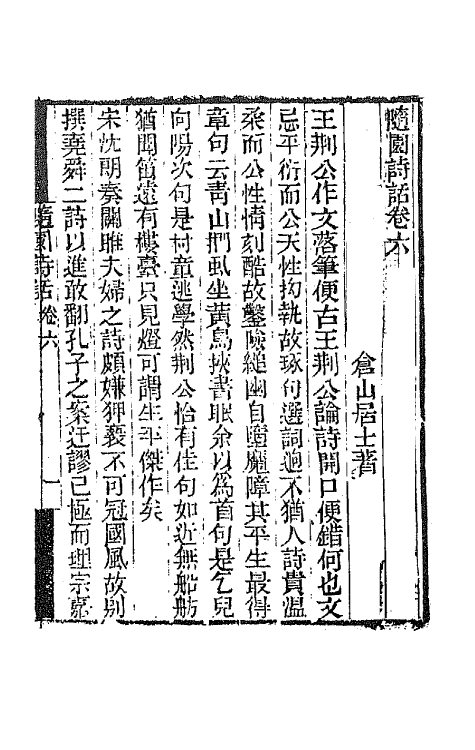 隨園詩話卷六
倉山居士著
王荆公作文落筆便古王荆公論詩開口便錯何也文
忌平衍而公天性拘執故琢句選詞迥不猶人詩貴溫
柔而公性情刻酷故鑿險縋幽自墮魔障其平生最得
章句云青山捫虱坐黃鳥挾書眠余以爲首句是乞兒
向陽次句是村童逃學然荆公恰有佳句如近無船舫
猶聞笛遠有樓臺只見燈可謂生平傑作矣
宋沈朗奏關雎夫婦之詩頗嫌狎褻不可冠國風故别
撰堯舜二詩以進敢翻孔子之案迂謬已極而理宗嘉
隨園詩話 卷六 一